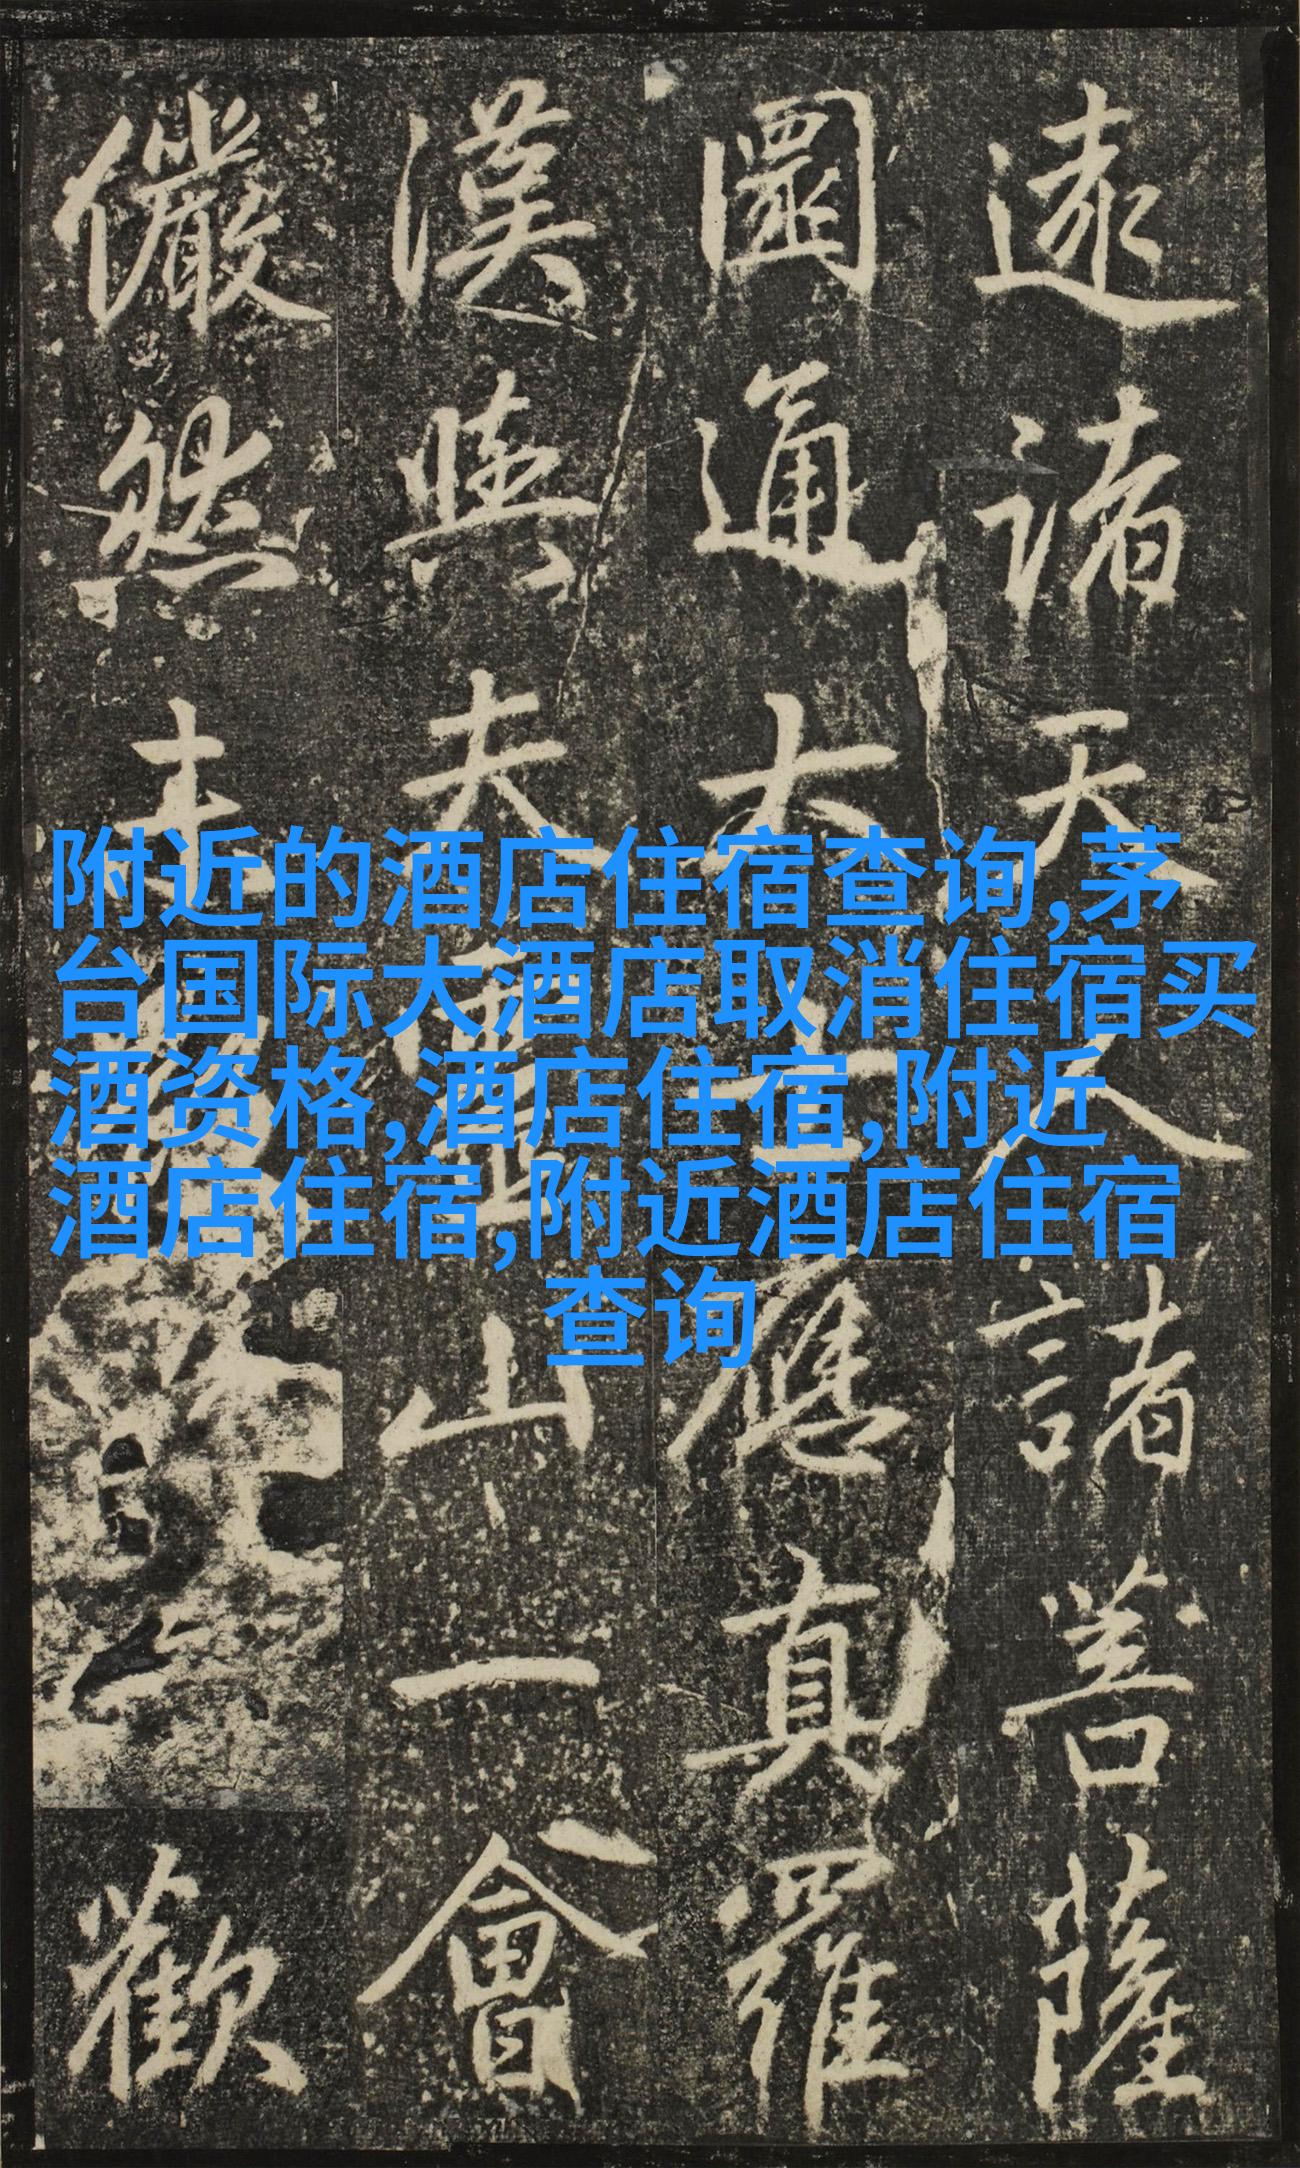 遠諸天人諸菩薩
圓通大應真羅
漢與夫靈山一會
儼然未歡
附近的酒店住宿查询,茅
台国际大酒店取消住宿买
酒资格,酒店住宿,附近
酒店住宿,附近酒店住宿
查询